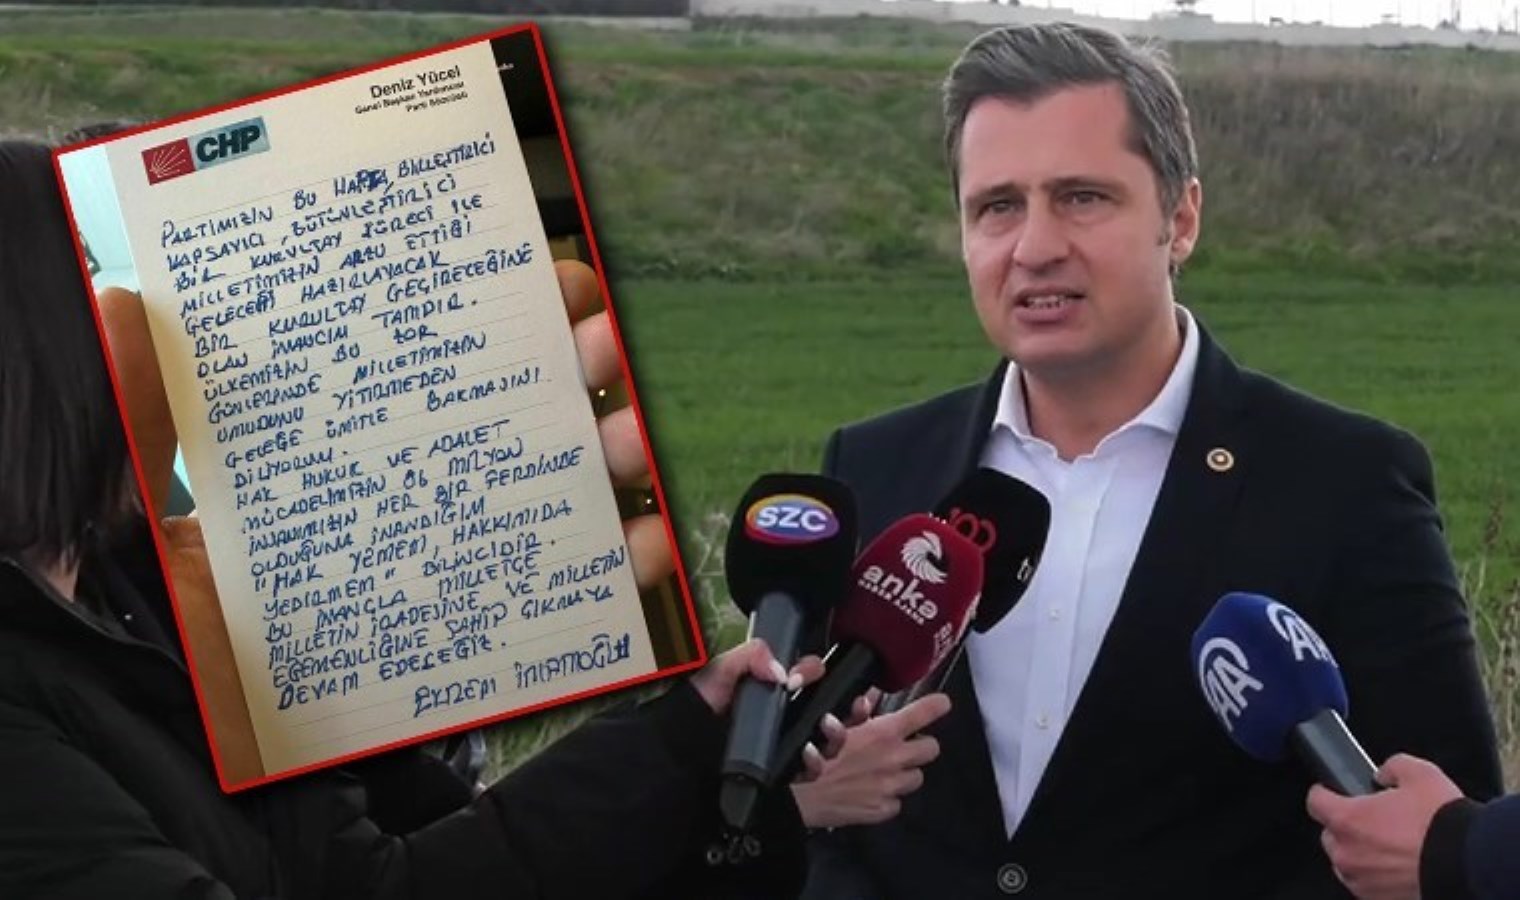 Deniz Yücel
Genel Başkan Yardımcısı
Parti Sözcüsü
CHP
PARTİMİZİN BU HAFTA, BİRLEŞTİRİCİ
KAPSAYICI, BÜTÜNLEŞTİRİCİ
BİR KURULTAY SÜRECİ İLE
MİLLETİMİZİN ARZU ETTİĞİ
GELECEĞİ HAZIRLAYACAK
BİR KURULTAY GEÇİRECEĞİNE
OLAN İNANCIM TAMDIR.
ÜLKEMİZİN BU ZOR
GÜNLERİNDE MİLLETİMİZİN
UMUDUNU YİTİRMEDEN
GELEĞE ÜMİTLE BAKMASINI
DİLİYORUM.
HAK HUKUK VE ADALET
MÜCADELMİZİN 86 MİLYON
İNSANIMIZIN HER BİR FERDİNDE
OLDUĞUNA İNANDIĞIM
"HAK YEMEM, HAKKIMIDA
YEDİRMEM" BİLİNCİDİR.
BU İNANÇLA MİLLETÇE
MİLLETİN İRADESİNE VE MİLLETİN
EGEMENLİĞİNE SAHİP ÇIKMAYA
DEVAM EDECEĞİZ.
EKREM İMAMOĞLU
SZC
anka
HABER AJANSI
tv
AA
AA